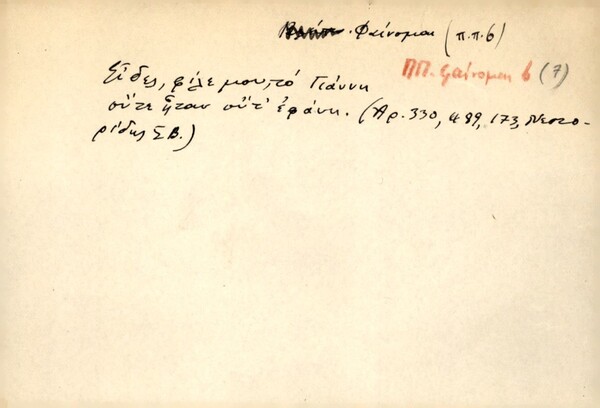 Φαίνομαι (π.π.6)
ΠΠ. φαίνομαι 6 (7)
Εἶδες, φίλε μου, τό Γιάννη
οὔτε ἦταν οὔτ' ἐφάνη. (Αρ. 330, 489, 173, Νεστο-
ρίδης Σ.Β.)